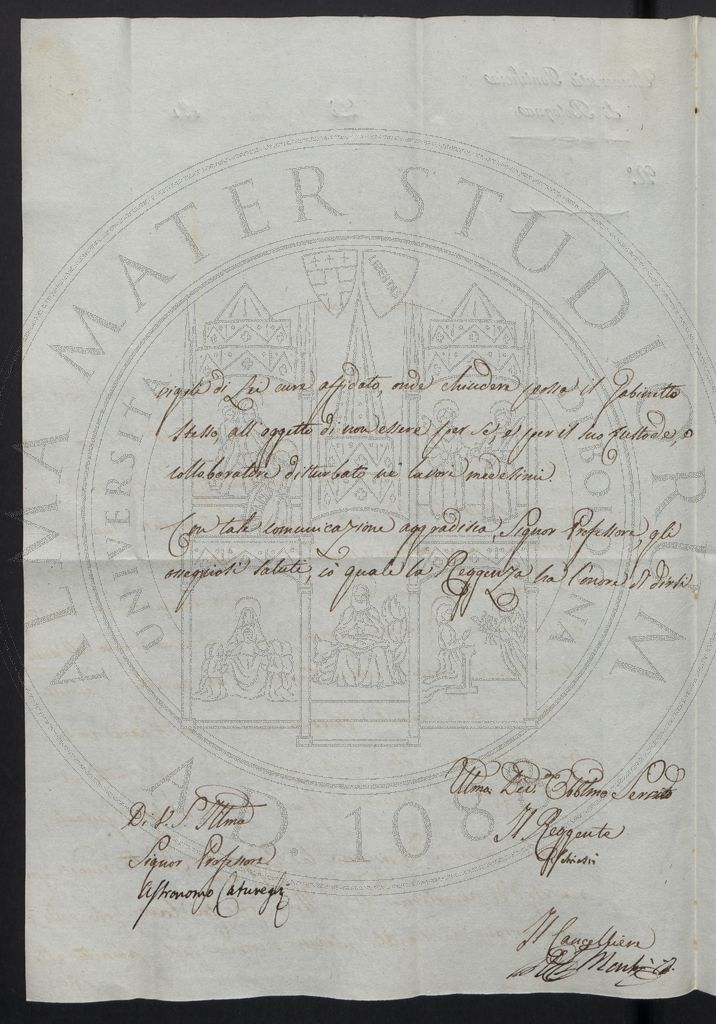 vigile di Lei cura affidato, onde chiudere possa il Gabinetto
stesso, all'oggetto di non essere per sè, e per il suo Custode, e
collaboratore disturbato ne' lavori medesimi.
Con tale comunicazione aggradisca, Signor Professore, gli
ossequiosi saluti, co' quali la Reggenza ha l'onore di dirsi
Di V. S. Illma
Signor Professore
Astronomo Caturegli
Servito
Il Reggente
Schiassi
Il Cancelliere
ALMA MATER STUDIORUM
UNIVERSITÀ DI BOLOGNA
A.D. 1088
LIBERTAS